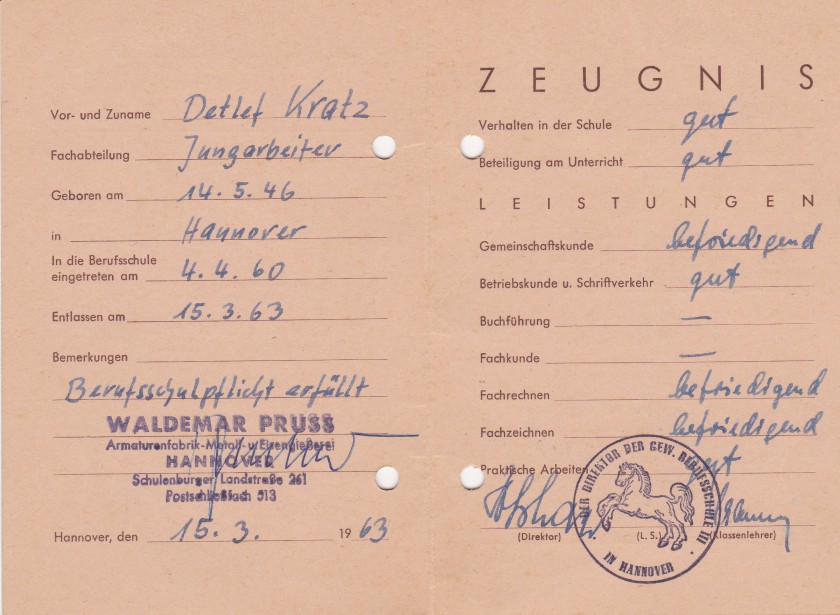 Vor- und Zuname Detlef Kratz
Fachabteilung Jungarbeiter
Geboren am 14. 5. 46
in Hannover
In die Berufsschule
eingetreten am 4. 4. 60
Entlassen am 15. 3. 63
Bemerkungen
Berufsschulpflicht erfüllt
WALDEMAR PRUSS
Armaturenfabrik-Metall- u. Eisengießerei
HANNOVER
Schulenburger Landstraße 261
Postschließfach 513
Hannover, den 15. 3. 1963
ZEUGNIS
Verhalten in der Schule gut
Beteiligung am Unterricht gut
LEISTUNGEN
Gemeinschaftskunde befriedigend
Betriebskunde u. Schriftverkehr gut
Buchführung —
Fachkunde —
Fachrechnen befriedigend
Fachzeichnen befriedigend
Praktische Arbeiten gut
DER DIREKTOR DER GEW. BERUFSSCHULE III
IN HANNOVER
(Direktor) (L. S.) (Klassenlehrer)